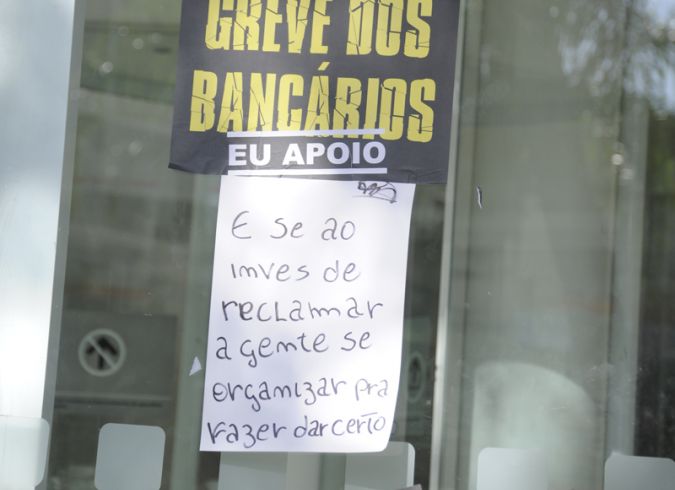 GREVE DOS
BANCÁRIOS
EU APOIO
E se ao
imves de
reclamar
a gente se
organizar pra
fazer dar certo